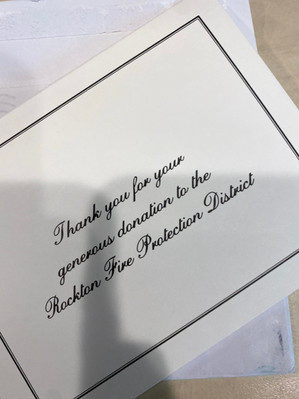 Thank you for your
generous donation to the
Rockton Fire Protection District